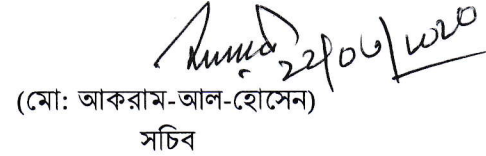 22/06/2020
(মো: আকরাম-আল-হোসেন)
সচিব